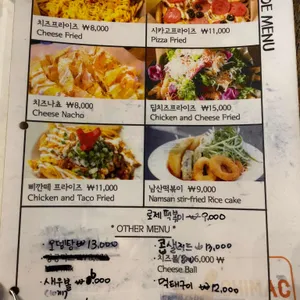 DE MENU
치즈프라이즈 ₩8,000
Cheese Fried
시카고프라이즈 ₩11,000
Pizza Fried
치즈나쵸 ₩8,000
Cheese Nacho
딥치즈프라이즈 ₩15,000
Chicken and Cheese Fried
삐깐떼 프라이즈 ₩11,000
Chicken and Taco Fried
남산떡볶이 ₩9,000
Namsan stir-fried Rice cake
로제 떡볶이 ₩9,000
* OTHER MENU *
· 오뎅탕 ₩13,000
· 콘샐러드 ₩13,000
· 치즈볼 ₩6,000
Cheese Ball
· 새우볼 ₩8,000
· 먹태구이 ₩12,000